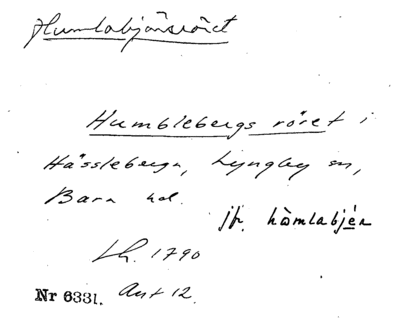 Humlabjärsröret
Humblebergs röret i
Hässleberga, Lyngby sn,
Bara hd.
jfr hòmlabjéṛ
Lh. 1790
Nr 6331. Ant 12.